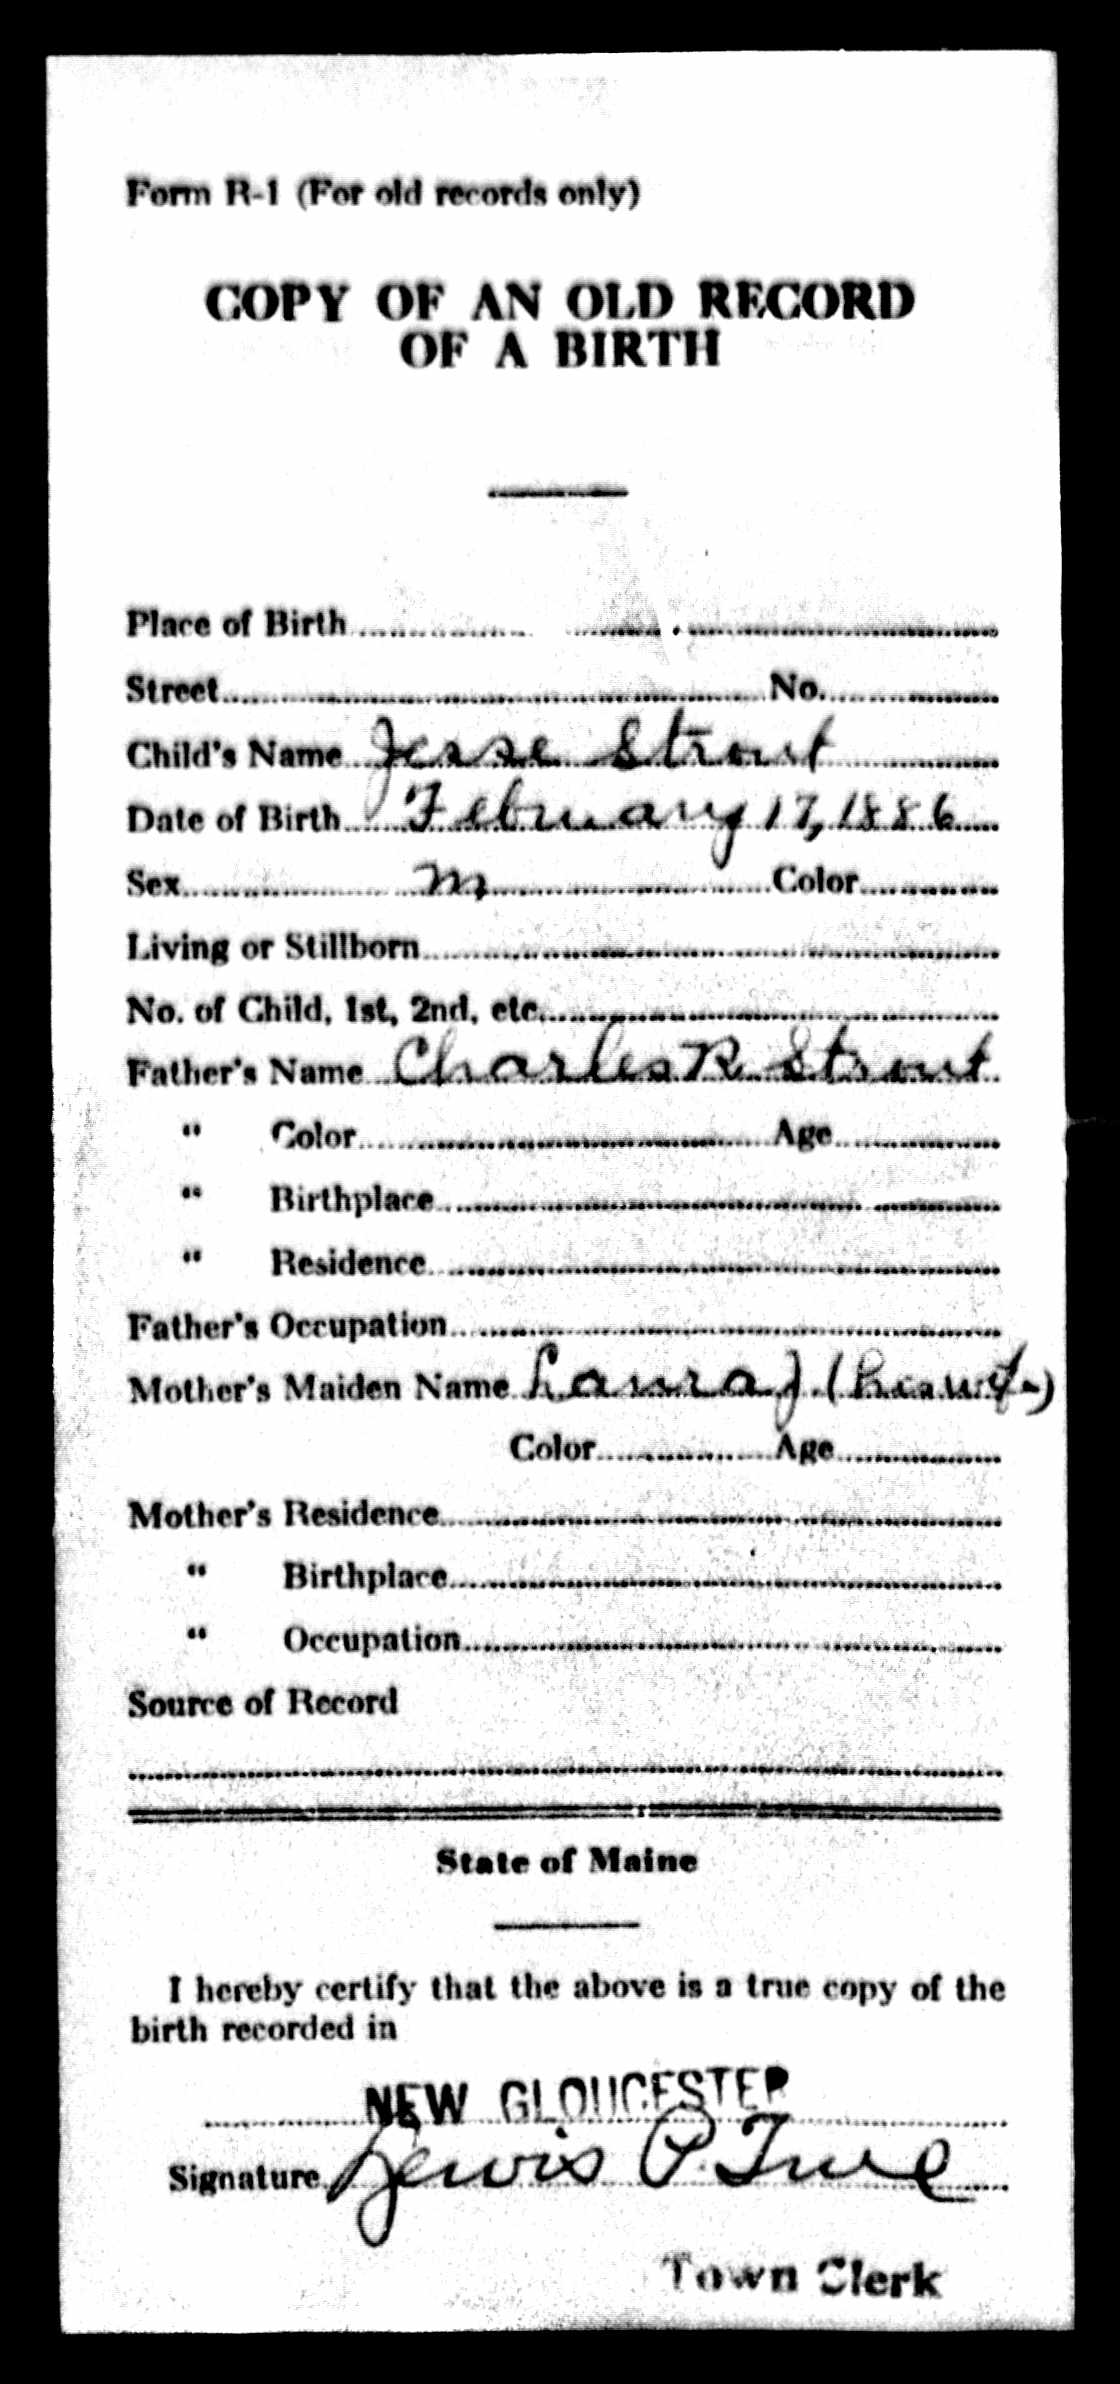 Form R-1 (For old records only)
COPY OF AN OLD RECORD
OF A BIRTH
Place of Birth
Street No.
Child's Name Jesse Strout
Date of Birth February 17, 1886
Sex M Color
Living or Stillborn
No. of Child, 1st, 2nd, etc.
Father's Name Charles R Strout
" Color Age
" Birthplace
" Residence
Father's Occupation
Mother's Maiden Name Laura J.
Color Age
Mother's Residence
" Birthplace
" Occupation
Source of Record
State of Maine
I hereby certify that the above is a true copy of the
birth recorded in
NEW GLOUCESTER
Signature Lewis P. True
Town Clerk